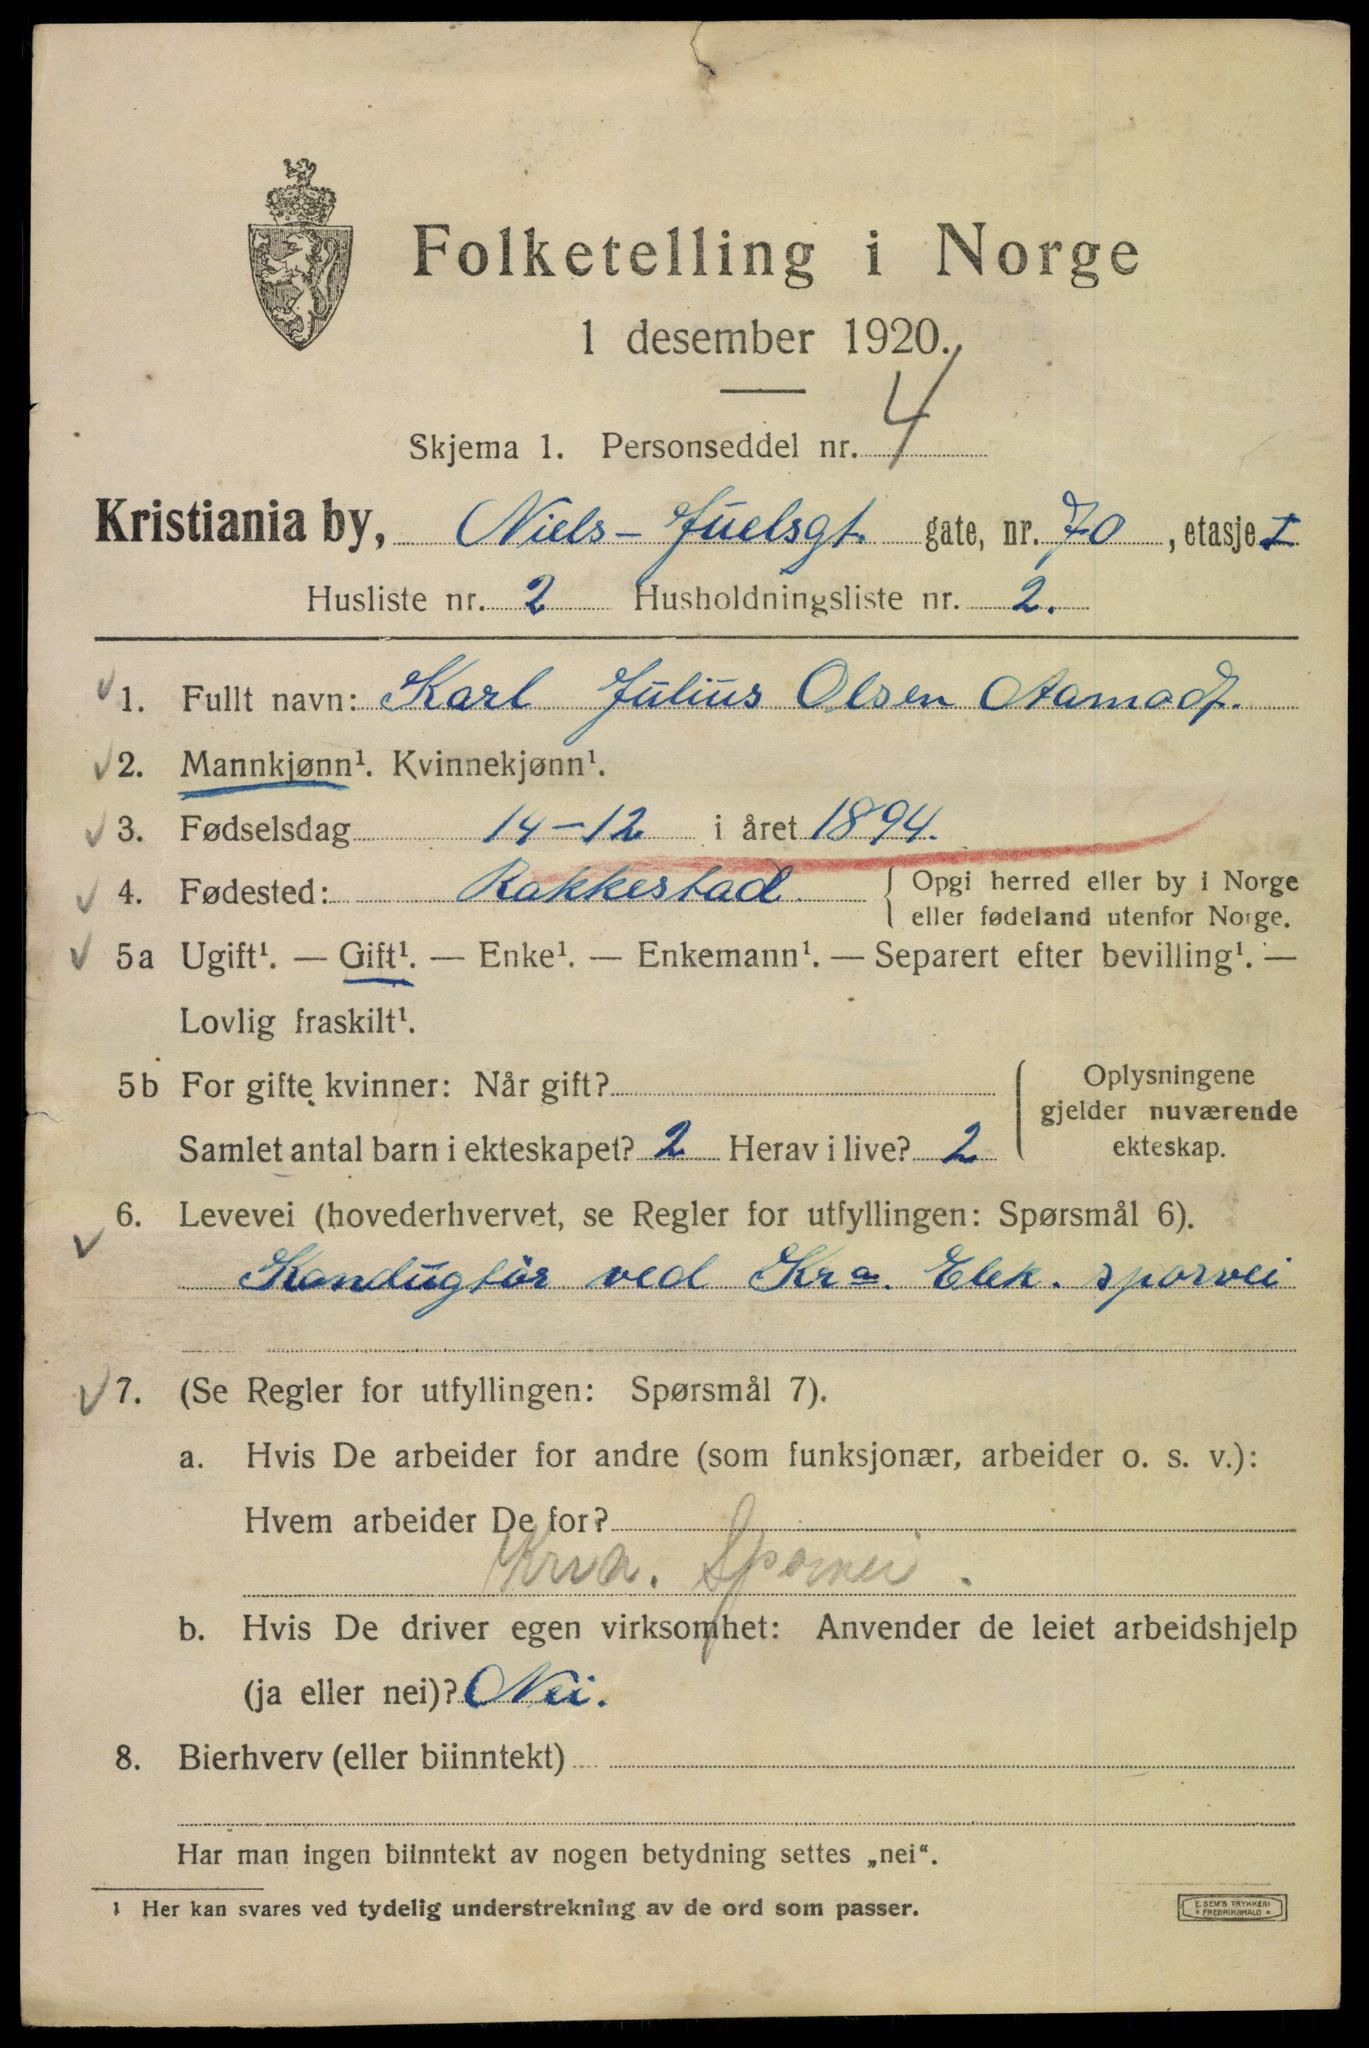 Folketelling i Norge
1 desember 1920.
Skjema 1. Personseddel nr. 4
Kristiania by, Niels-Juelsgt. gate, nr. 70, etasje I
Husliste nr. 2 Husholdningsliste nr. 2.
1. Fullt navn: Karl Julius Olsen Aamodt.
2. Mannkjønn¹. Kvinnekjønn¹.
3. Fødselsdag 14-12 i året 1894.
4. Fødested: Rakkestad. { Opgi herred eller by i Norge
eller fødeland utenfor Norge.
5a Ugift¹. — Gift¹. — Enke¹. — Enkemann¹. — Separert efter bevilling¹. —
Lovlig fraskilt¹.
5b For gifte kvinner: Når gift?
Samlet antal barn i ekteskapet? 2 Herav i live? 2
Oplysningene
gjelder nuværende
ekteskap.
6. Levevei (hovederhvervet, se Regler for utfyllingen: Spørsmål 6).
Kondugtør ved Kra. Elek. sporvei
7. (Se Regler for utfyllingen: Spørsmål 7).
a. Hvis De arbeider for andre (som funksjonær, arbeider o. s. v.):
Hvem arbeider De for?
Krva. Sporvei.
b. Hvis De driver egen virksomhet: Anvender de leiet arbeidshjelp
(ja eller nei)? Nei.
8. Bierhverv (eller biinntekt)
Har man ingen biinntekt av nogen betydning settes „nei“.
¹ Her kan svares ved tydelig understrekning av de ord som passer.
E. SEM'S TRYKKERI
* FREDRIKSHALD *